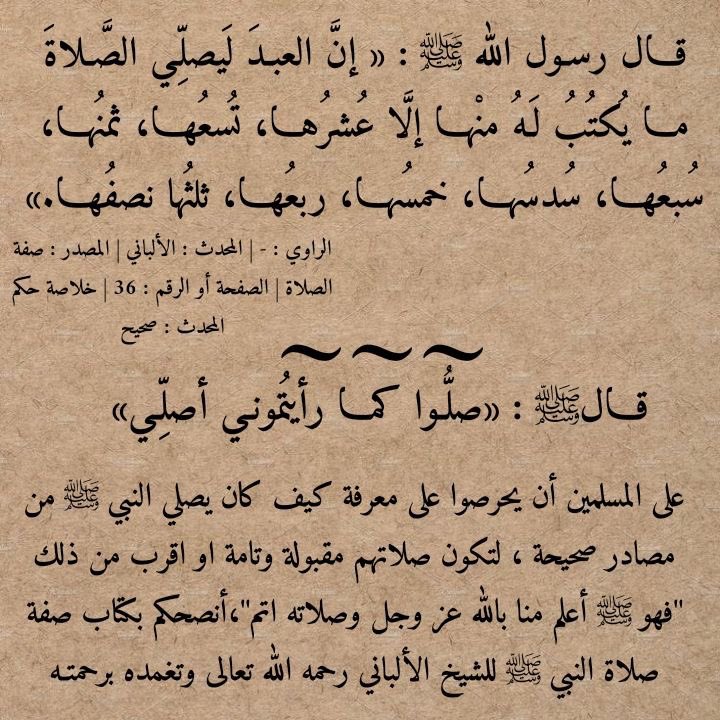 قال رسول الله ﷺ : « إنَّ العبدَ لَيصلِّي الصَّلاةَ
ما يُكتُبُ لَهُ منْها إلَّا عُشرُها، تُسعُها، ثمنُها،
سُبعُها، سُدسُها، خمسُها، ربعُها، ثلثُها نصفُها.»
الراوي : - | المحدث : الألباني | المصدر : صفة
الصلاة | الصفحة أو الرقم : 36 | خلاصة حكم
المحدث : صحيح
~ ~ ~
قالﷺ : «صلُّوا كما رأيتُموني أصلِّي»
على المسلمين أن يحرصوا على معرفة كيف كان يصلي النبي ﷺ من
مصادر صحيحة ، لتكون صلاتهم مقبولة وتامة او اقرب من ذلك
"فهو ﷺ أعلم منا بالله عز وجل وصلاته اتم"،أنصحكم بكتاب صفة
صلاة النبي ﷺ للشيخ الألباني رحمه الله تعالى وتغمده برحمته